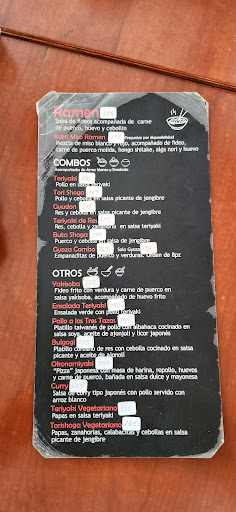 Ramen
Sopa de fideos acompañada de carne
de puerco, huevo y cebollin
Kara Miso Ramen (Preguntar por disponibilidad)
Mezcla de miso blanco y rojo, acompañado de fideo,
carne de puerco molida, hongo shitake, alga nori y huevo
COMBOS
Acompañados de Arroz blanco y Ensalada
Teriyaki
Pollo en salsa teriyaki
Tori Shoga
Pollo y cebolla en salsa picante de jengibre
Gyudon
Res y cebolla en salsa picante de jengibre
Teriyaki de Res
Res, cebolla y zanahoria en salsa teriyaki
Buta Shoga
Puerco y cebolla en salsa de jengibre
Gyoza Combo Solo Gyoza
Empanaditas de puerco y verduras. Orden de 8pz
OTROS
Yakisoba
Fideo frito con verdura y carne de puerco en
salsa yakisoba, acompañado de huevo frito
Ensalada Teriyaki
Ensalada verde con pollo teriyaki
Pollo a las Tres Tazas
Platillo taiwanés de pollo con albahaca cocinado en
salsa soya, aceite de ajonjoli y licor japonés
Bulgogi
Platillo coreano de res con cebolla cocinado en salsa
picante y aceite de ajonjoli
Okonomiyaki
"Pizza" japonesa con masa de harina, repollo, huevos
y carne de puerco, bañada en salsa dulce y mayonesa
Curry
Salsa de curry tipo japonés con pollo servido con
arroz blanco
Teriyaki Vegetariano
Papas en salsa teriyaki
Torishoga Vegetariano 165
Papas, zanahorias, calabacitas y cebollas en salsa
picante de jengibre